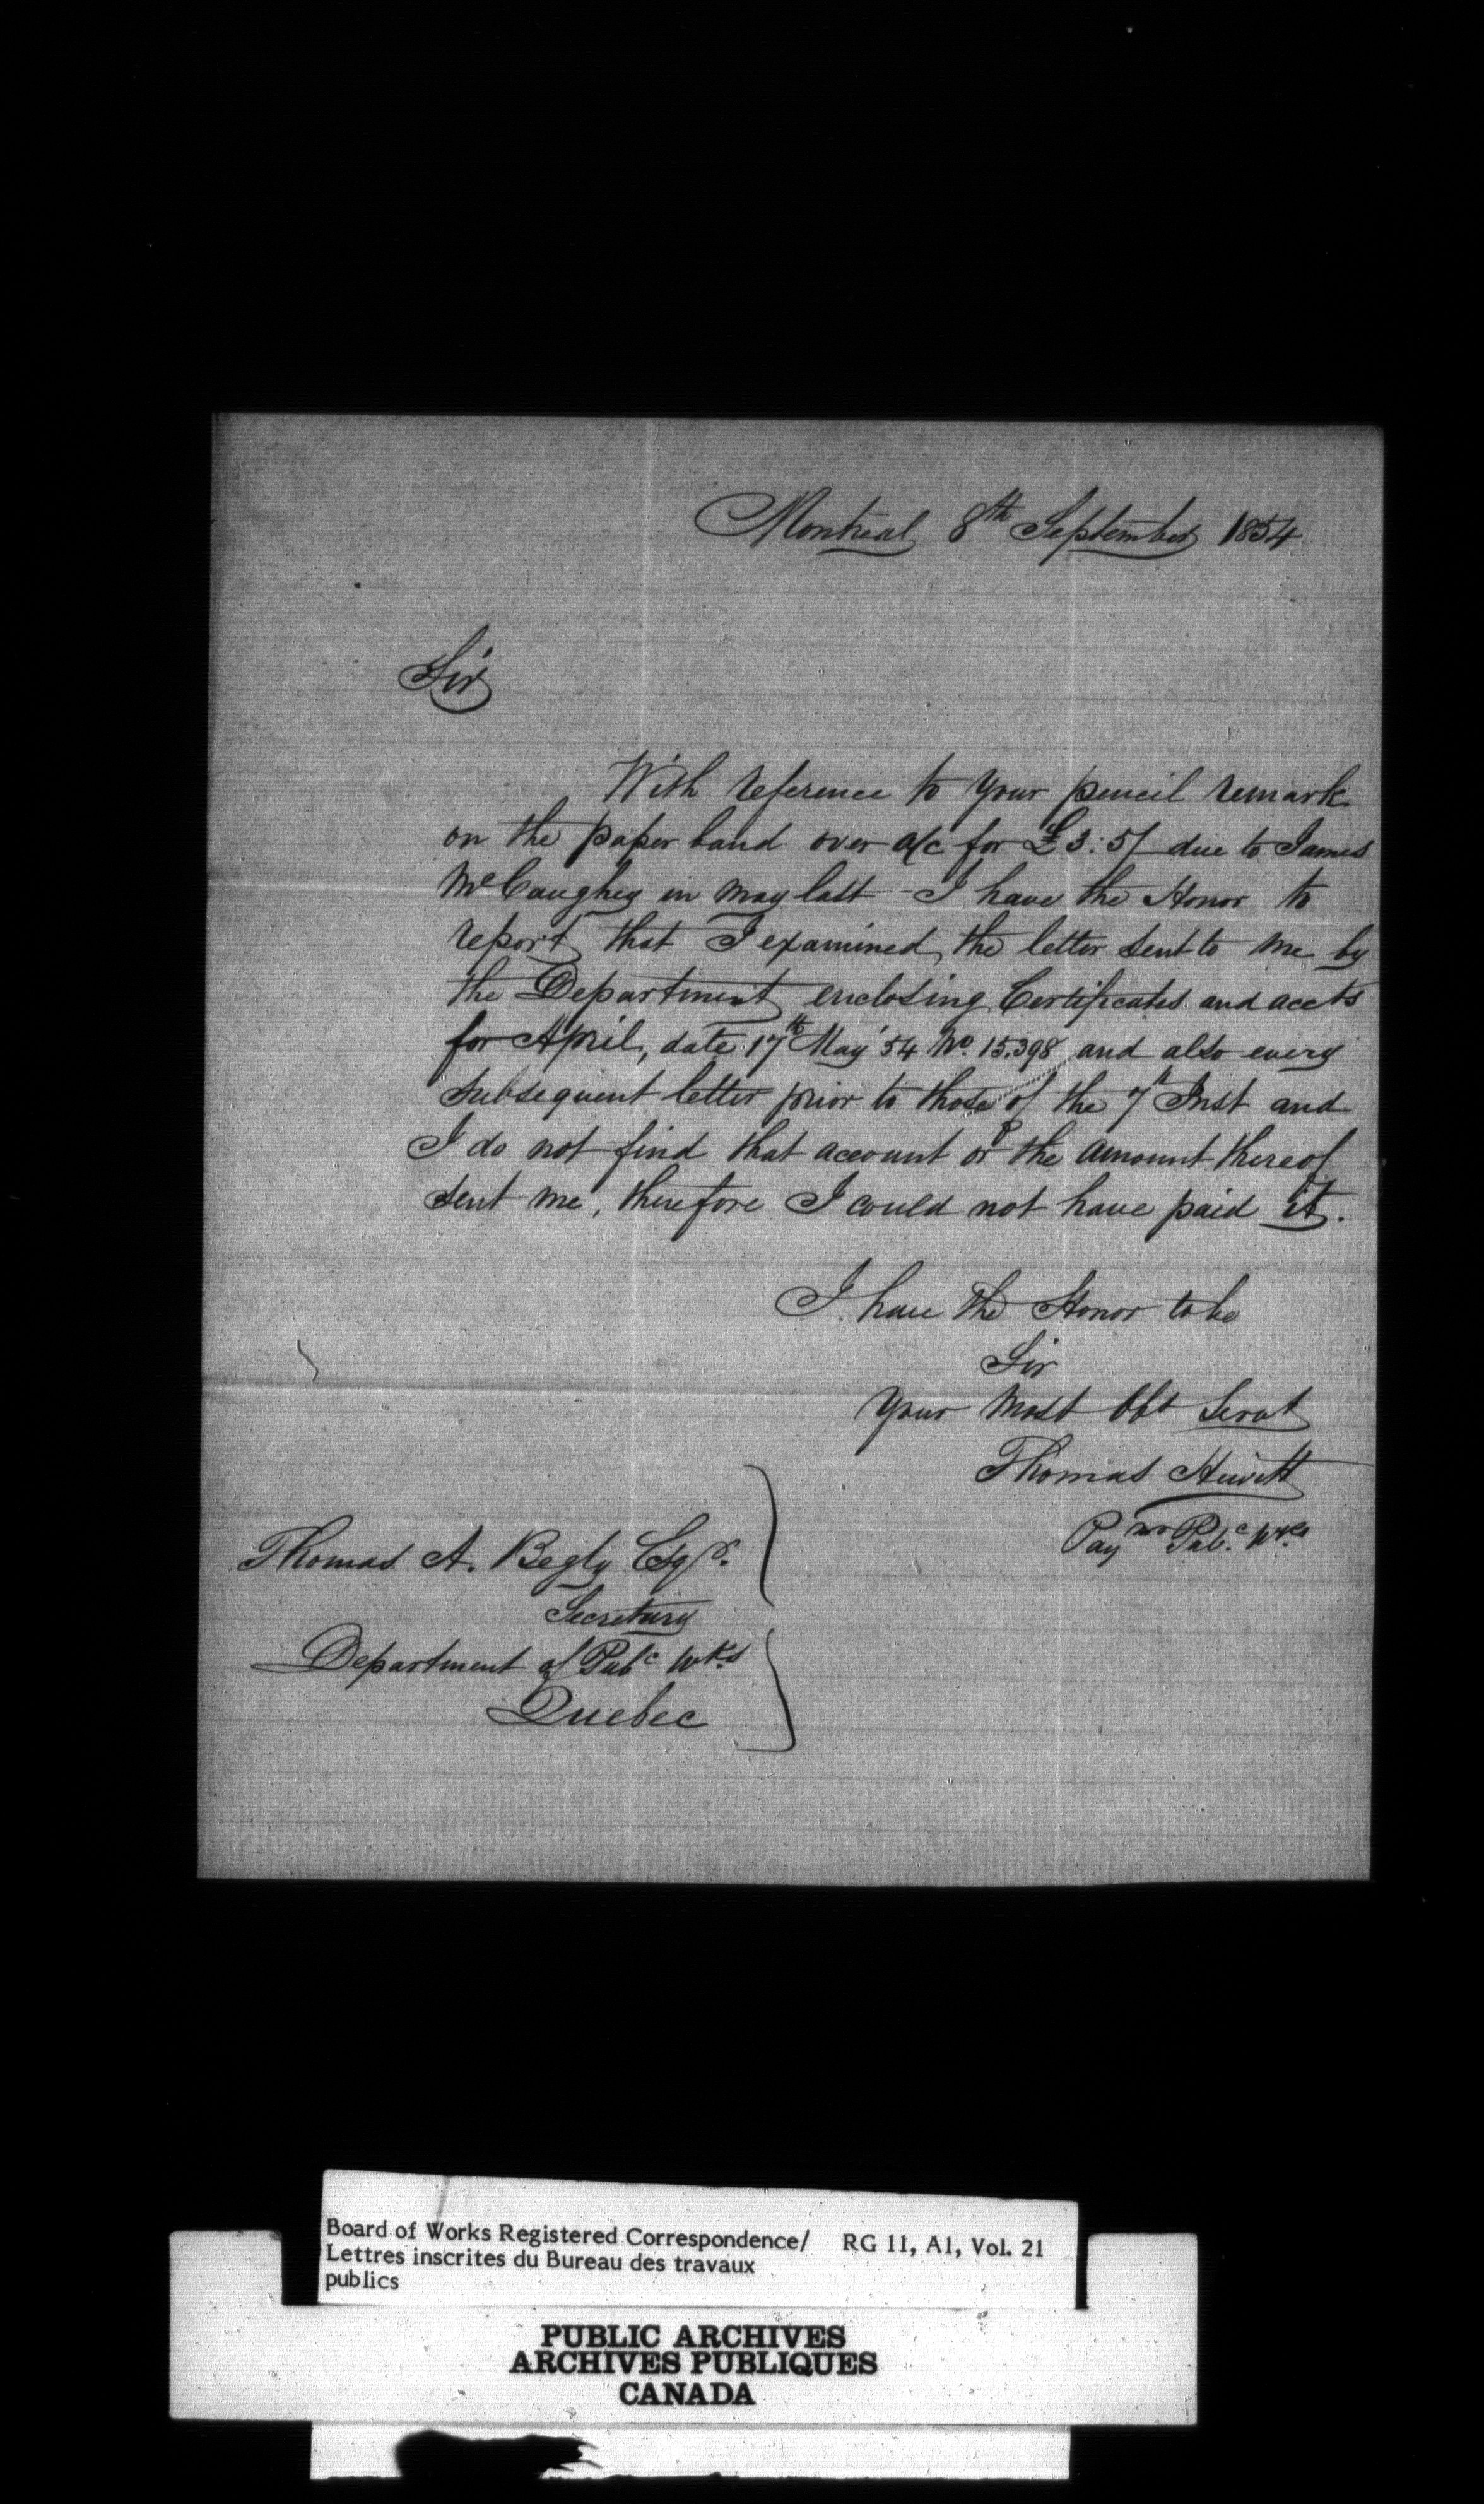 Montreal 8th September 1854
Sir
With reference to your pencil remark
on the paper band over a/c for £3:5/ due to James
McCaughey in may last - I have the Honor to
report that I examined the letter sent to me by
the Department enclosing Certificates and accts
for April, date 17th May '54 No. 15.398 and also every
subsequent letter prior to those of the 7th Inst and
I do not find that account or the amount thereof
sent me, therefore I could not have paid it.
I have the Honor to be
Sir
Your Most Obt Servt
Thomas Hewitt
Paymr Pubc. Wks
Thomas A. Begly Esqr.
Secretary
Department of Pubc Wks
Quebec
Board of Works Registered Correspondence/ RG 11, A1, Vol. 21
Lettres inscrites du Bureau des travaux
publics
PUBLIC ARCHIVES
ARCHIVES PUBLIQUES
CANADA